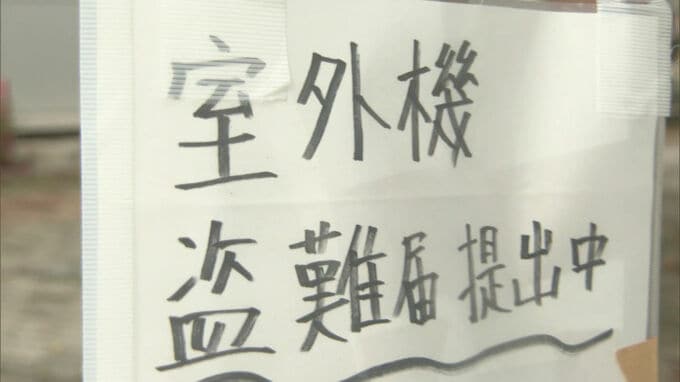 室外機
盗難届提出中